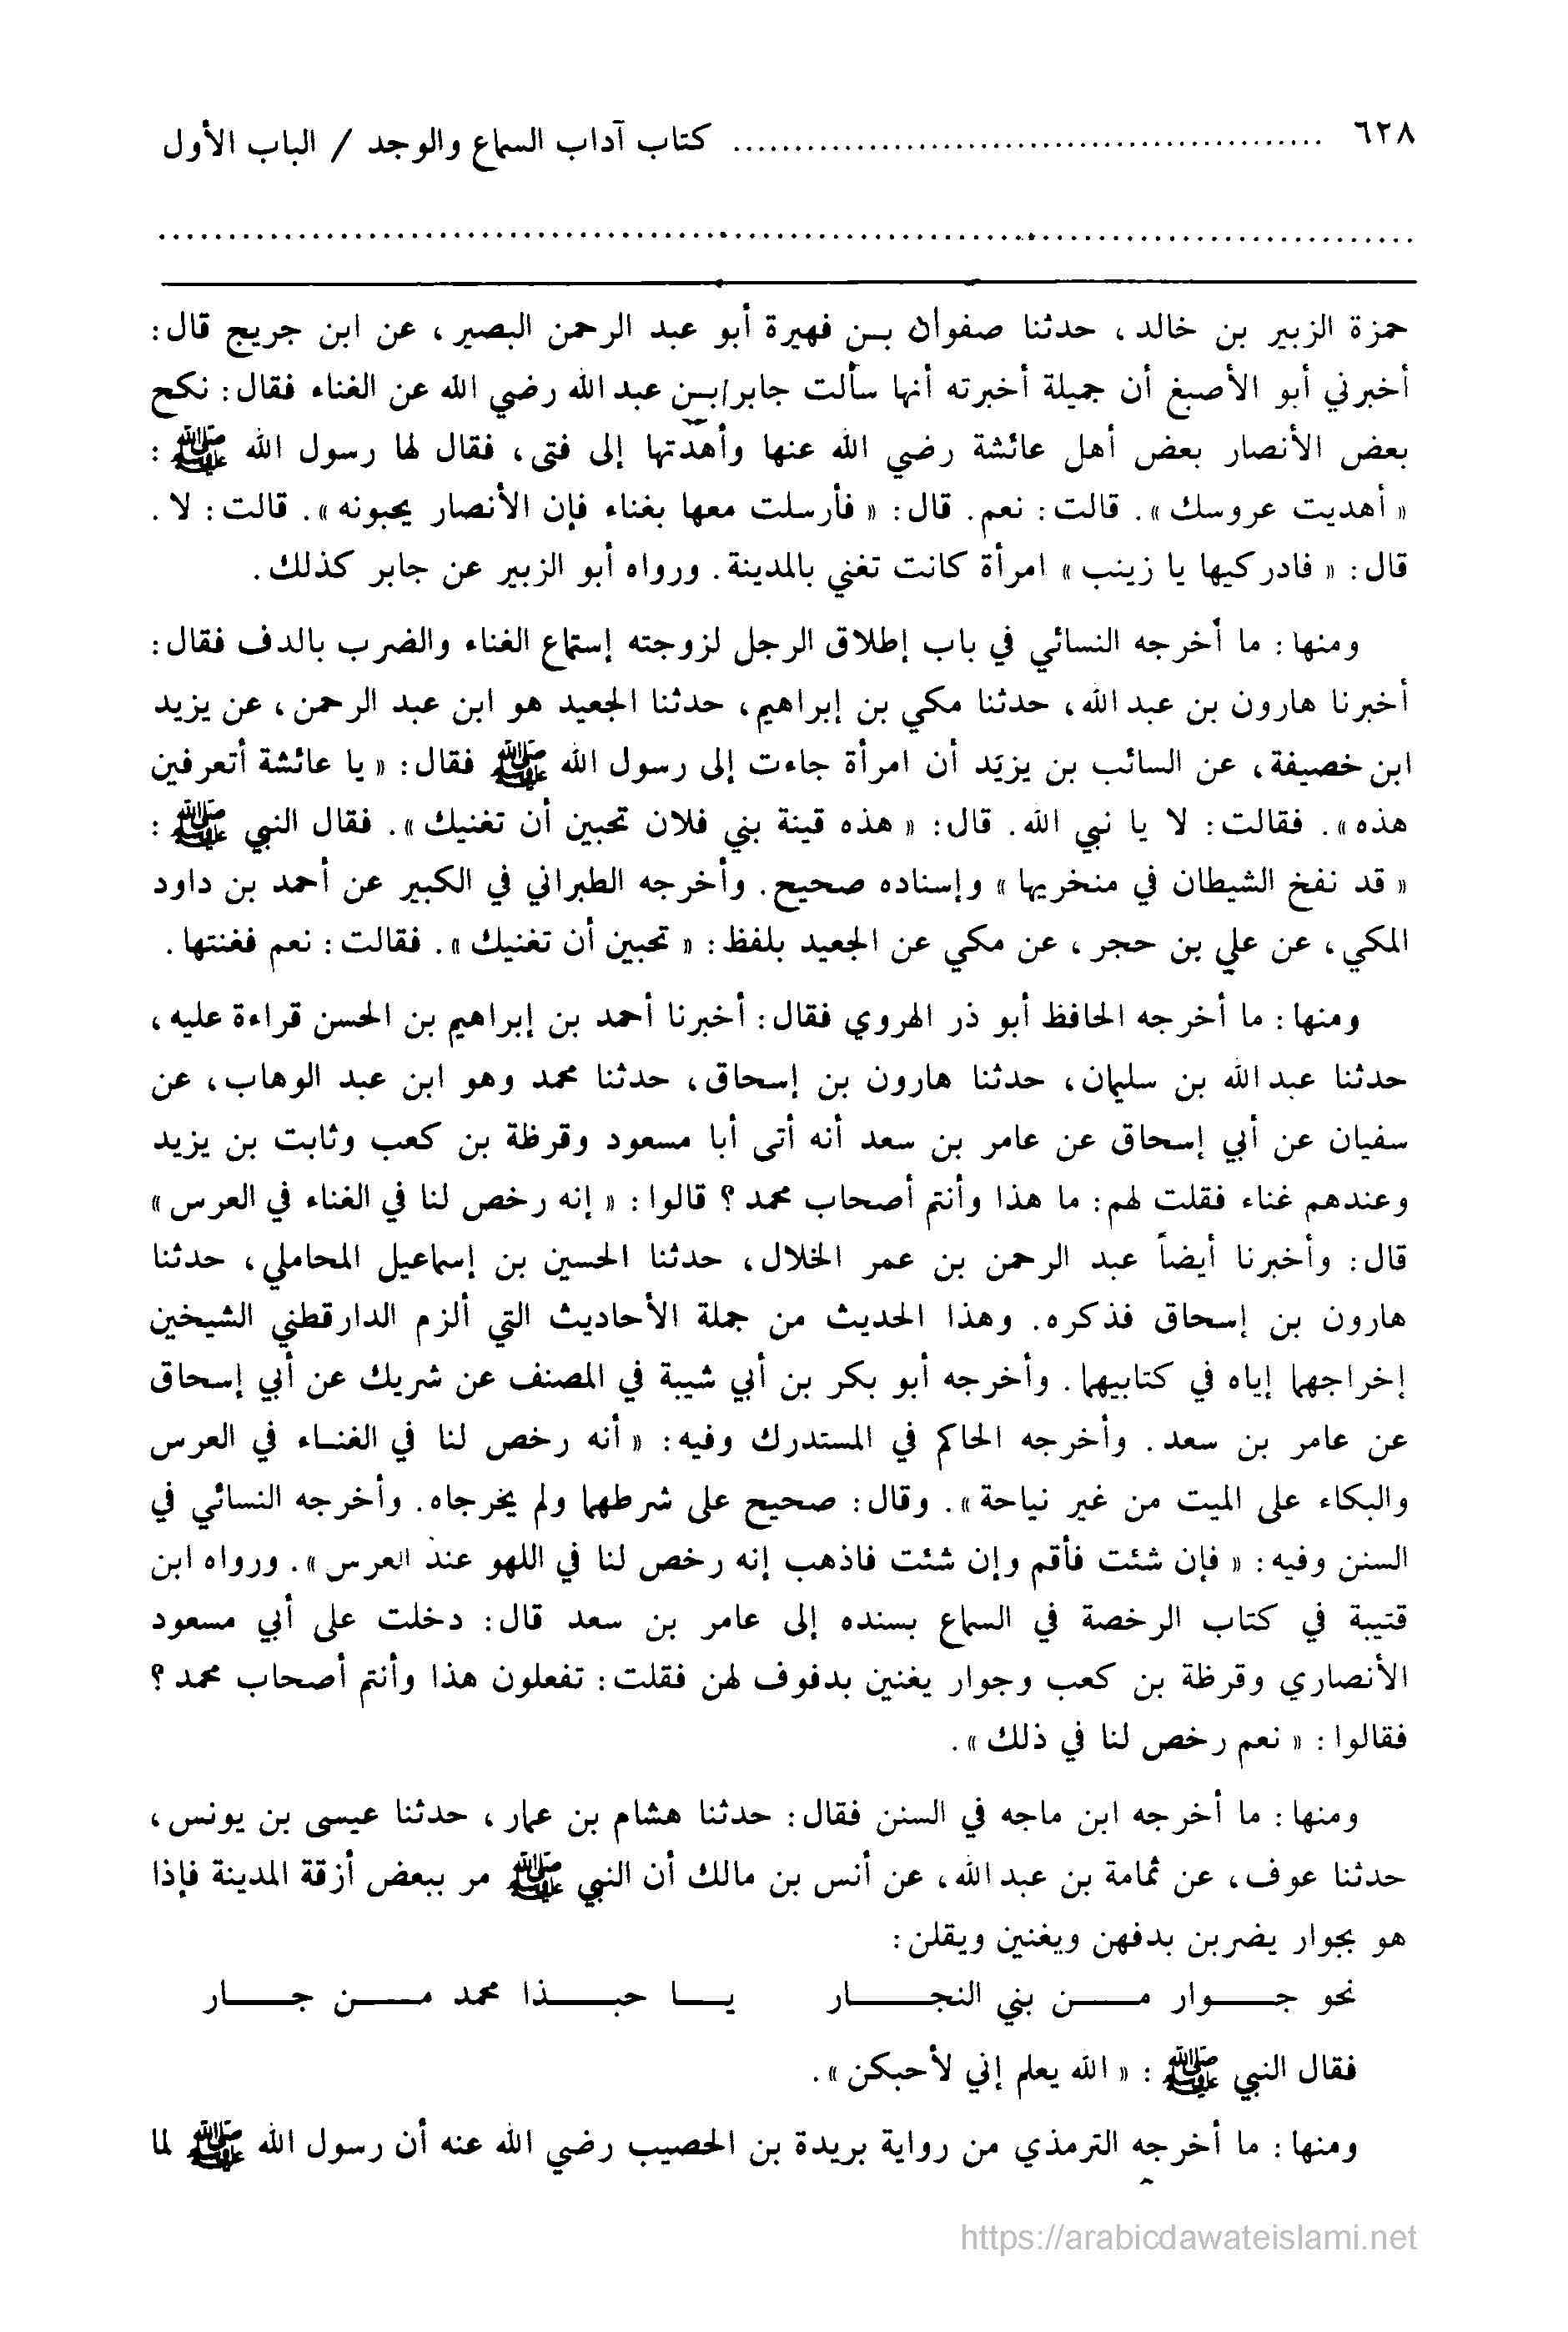 ٦٢٨ ................................................ كتاب آداب السماع والوجد / الباب الأول
حمزة الزبير بن خالد، حدثنا صفوان بـن فهيرة أبو عبد الرحمن البصير، عن ابن جريج قال:
أخبرني أبو الأصبغ أن جميلة أخبرته أنها سألت جابر/بـن عبد الله رضي الله عن الغناء فقال: نكح
بعض الأنصار بعض أهل عائشة رضي الله عنها وأهدتها إلى فتى، فقال لها رسول الله ﷺ :
« أهديت عروسك». قالت: نعم. قال: « فأرسلت معها بغناء فإن الأنصار يحبونه». قالت: لا.
قال: « فادركيها يا زينب» امرأة كانت تغني بالمدينة. ورواه أبو الزبير عن جابر كذلك.
ومنها: ما أخرجه النسائي في باب إطلاق الرجل لزوجته إستماع الغناء والضرب بالدف فقال:
أخبرنا هارون بن عبد الله، حدثنا مكي بن إبراهيم، حدثنا الجعيد هو ابن عبد الرحمن، عن يزيد
ابن خصيفة، عن السائب بن يزيد أن امرأة جاءت إلى رسول الله ﷺ فقال: « يا عائشة أتعرفين
هذه». فقالت: لا يا نبي الله. قال: « هذه قينة بني فلان تحبين أن تغنيك». فقال النبي ﷺ :
« قد نفخ الشيطان في منخريها» وإسناده صحيح. وأخرجه الطبراني في الكبير عن أحمد بن داود
المكي، عن علي بن حجر، عن مكي عن الجعيد بلفظ: « تحبين أن تغنيك». فقالت: نعم فغنتها.
ومنها: ما أخرجه الحافظ أبو ذر الهروي فقال: أخبرنا أحمد بن إبراهيم بن الحسن قراءة عليه،
حدثنا عبد الله بن سليمان، حدثنا هارون بن إسحاق، حدثنا محمد وهو ابن عبد الوهاب، عن
سفيان عن أبي إسحاق عن عامر بن سعد أنه أتى أبا مسعود وقرظة بن كعب وثابت بن يزيد
وعندهم غناء فقلت لهم: ما هذا وأنتم أصحاب محمد؟ قالوا: « إنه رخص لنا في الغناء في العرس»
قال: وأخبرنا أيضاً عبد الرحمن بن عمر الخلال، حدثنا الحسين بن إسماعيل المحاملي، حدثنا
هارون بن إسحاق فذكره. وهذا الحديث من جملة الأحاديث التي ألزم الدارقطني الشيخين
إخراجهما إياه في كتابيهما. وأخرجه أبو بكر بن أبي شيبة في المصنف عن شريك عن أبي إسحاق
عن عامر بن سعد. وأخرجه الحاكم في المستدرك وفيه: « أنه رخص لنا في الغنـاء في العرس
والبكاء على الميت من غير نياحة». وقال: صحيح على شرطهما ولم يخرجاه. وأخرجه النسائي في
السنن وفيه: « فإن شئت فأقم وإن شئت فاذهب إنه رخص لنا في اللهو عند العرس». ورواه ابن
قتيبة في كتاب الرخصة في السماع بسنده إلى عامر بن سعد قال: دخلت على أبي مسعود
الأنصاري وقرظة بن كعب وجوار يغنين بدفوف لهن فقلت: تفعلون هذا وأنتم أصحاب محمد؟
فقالوا: « نعم رخص لنا في ذلك».
ومنها: ما أخرجه ابن ماجه في السنن فقال: حدثنا هشام بن عمار، حدثنا عيسى بن يونس،
حدثنا عوف، عن ثمامة بن عبد الله، عن أنس بن مالك أن النبي ﷺ مر ببعض أزقة المدينة فإذا
هو بجوار يضربن بدفهن ويغنين ويقلن:
نحو جـــوار مـــن بني النجـــار    يـــا حبـــذا محمد مـــن جـــار
فقال النبي ﷺ : « الله يعلم إني لأحبكن».
ومنها: ما أخرجه الترمذي من رواية بريدة بن الحصيب رضي الله عنه أن رسول الله ﷺ لما
https://arabicdawateislami.net